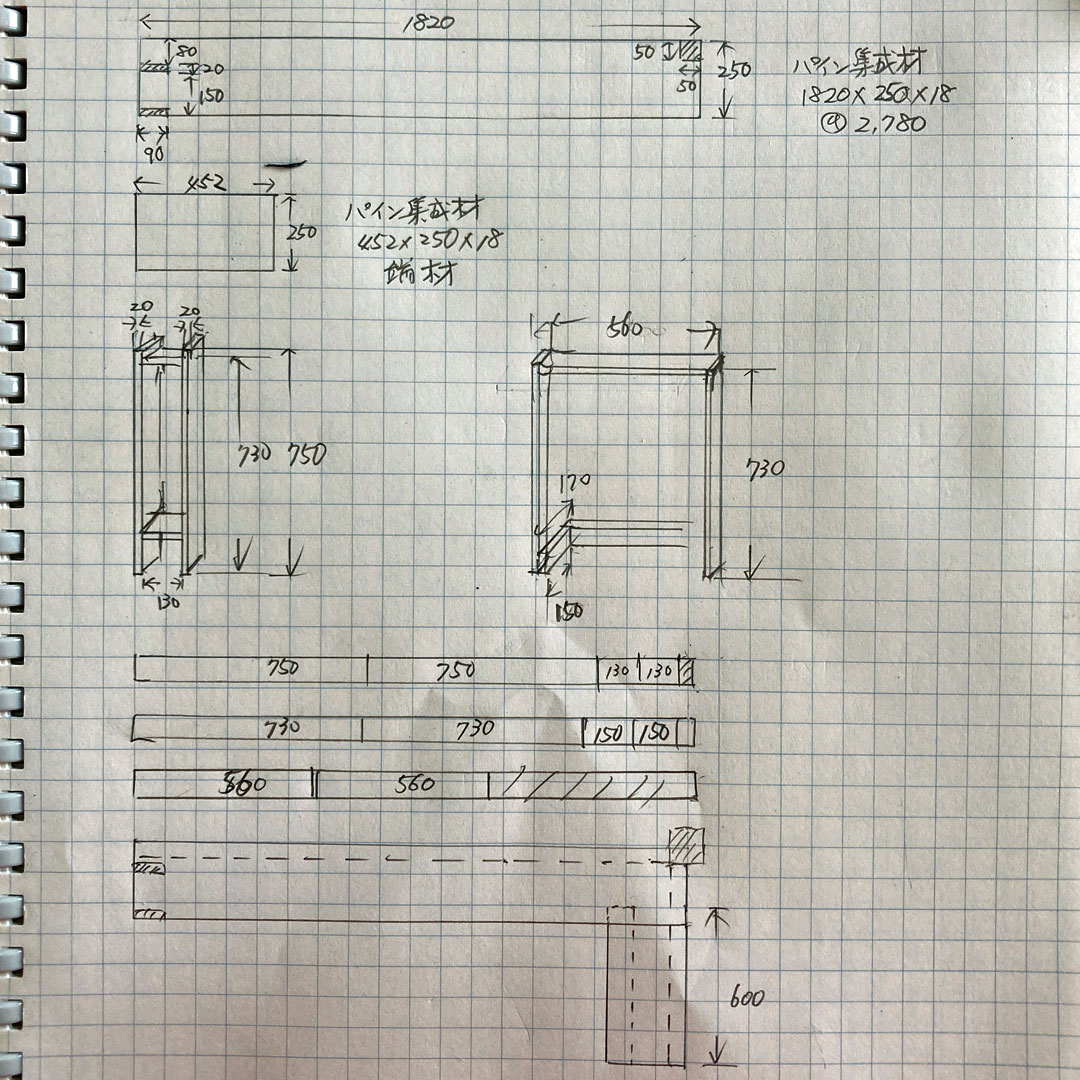 1820
80
20
150
90
50
50
250
パイン集成材
1820×250×18
@ 2,780
452
250
パイン集成材
452×250×18
端材
20
20
730
750
130
560
170
730
150
750
750
130
130
730
730
150
150
560
560
600